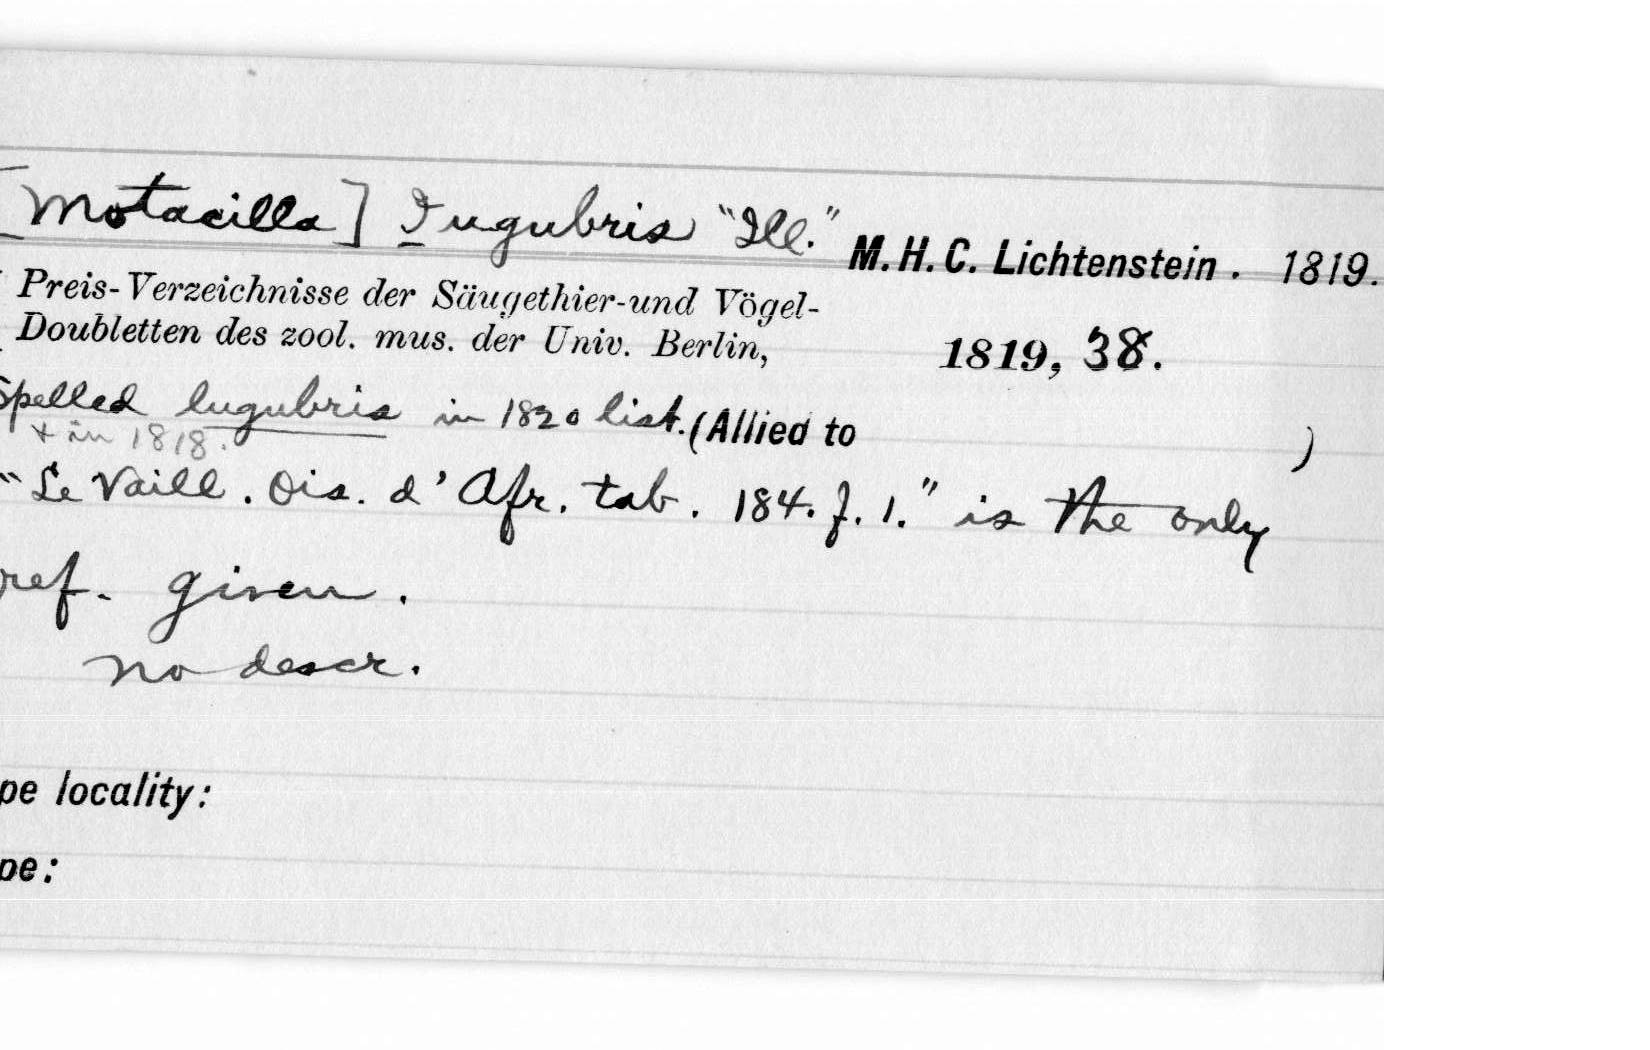 [Motacilla] Iugubris "Ill." M.H.C. Lichtenstein. 1819.
Preis-Verzeichnisse der Säugethier-und Vögel-
Doubletten des zool. mus. der Univ. Berlin, 1819, 38.
Spelled lugubris in 1820 list. (Allied to )
+ in 1818.
"Le Vaill. Ois. d'Afr. tab. 184. f. 1." is the only
ref. given.
no descr.
pe locality:
pe: